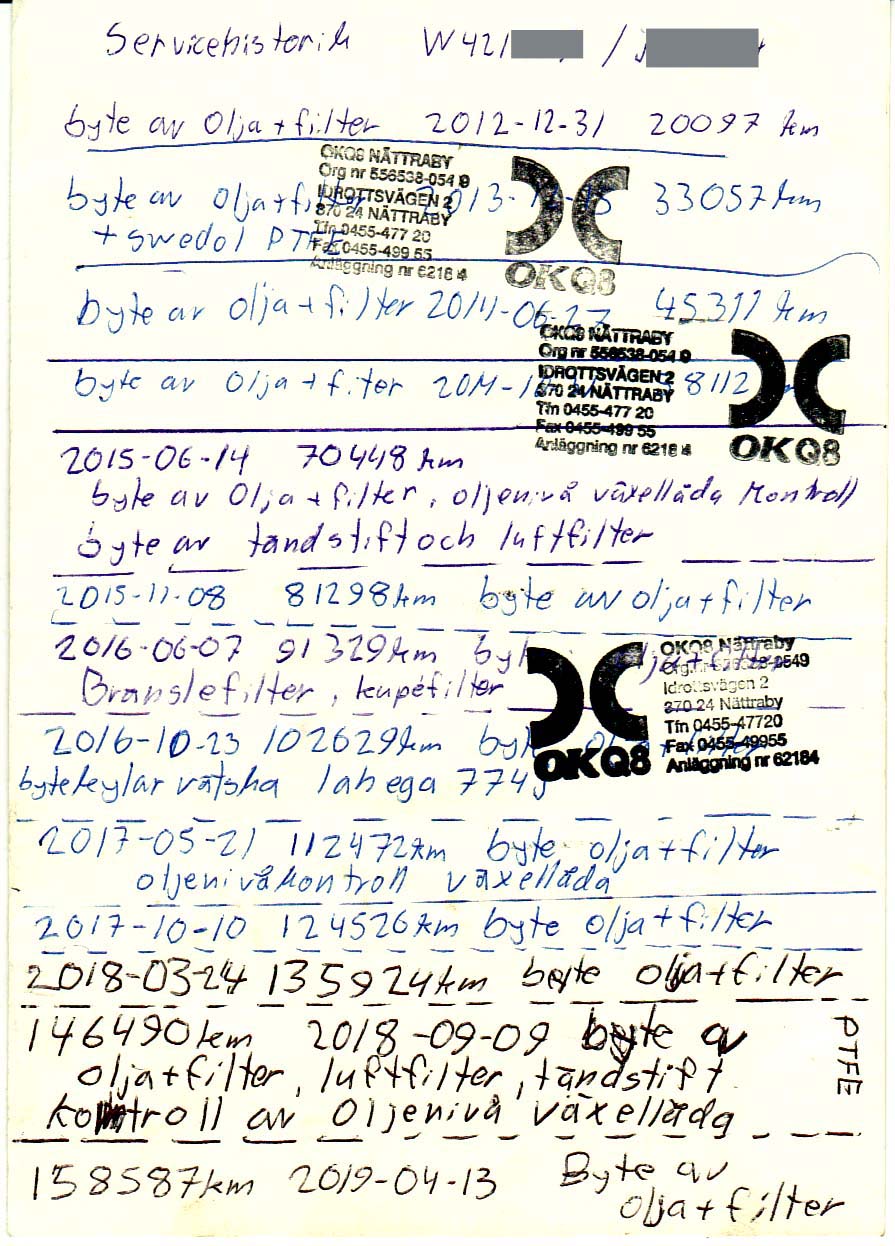 Servicehistorik W421 /
byte av olja + filter 2012-12-31 20097 km
OKQ8 NÄTTRABY
Org nr 556538-054 9
IDROTTSVÄGEN 2
370 24 NÄTTRABY
Tfn 0455-477 20
Fax 0455-499 55
Anläggning nr 6218 4
OKQ8
byte av olja + filter 2013-12- 33057 km
+ swedol PTFE
byte av olja + filter 2014-06-27 45311 km
OKQ8 NÄTTRABY
Org nr 556538-054 9
IDROTTSVÄGEN 2
370 24 NÄTTRABY
Tfn 0455-477 20
Fax 0455-499 55
Anläggning nr 6218 4
OKQ8
byte av olja + filter 2014-1 8112
2015-06-14 70448 km
byte av olja + filter, oljenivå växellåda kontroll
byte av tändstift och luftfilter
2015-11-08 81298 km byte av olja + filter
2016-06-07 91329 km byt olja + filter
Bränslefilter, kupéfilter
OKQ8
OKQ8 Nättraby
Org.nr 556538-0549
Idrottsvägen 2
370 24 Nättraby
Tfn 0455-47720
Fax 0455-49955
Anläggning nr 62184
2016-10-23 102629 km byt
byte kylar vätska lahega 774
2017-05-21 112472 km byte olja + filter
oljenivåkontroll växellåda
2017-10-10 124526 km byte olja + filter
2018-03-24 135924 km byte olja + filter
146490 km 2018-09-09 byte a
olja + filter, luftfilter, tändstift
kontroll av Oljenivå växellåda
PTFE
158587 km 2019-04-13 Byte av
olja + filter